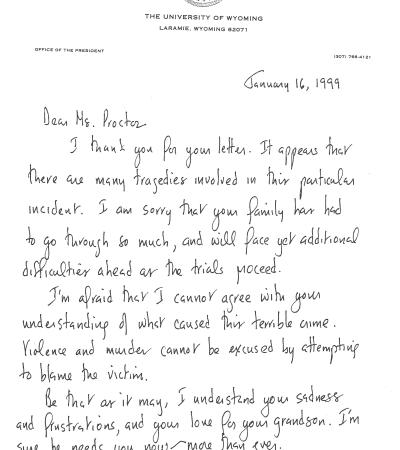 THE UNIVERSITY OF WYOMING
LARAMIE, WYOMING 82071
OFFICE OF THE PRESIDENT
(307) 766-4121
January 16, 1999
Dear Ms. Proctor
I thank you for your letter. It appears that
there are many tragedies involved in this particular
incident. I am sorry that your family has had
to go through so much, and will face yet additional
difficulties ahead as the trials proceed.
I'm afraid that I cannot agree with your
understanding of what caused this terrible crime.
Violence and murder cannot be excused by attempting
to blame the victim.
Be that as it may, I understand your sadness
and frustrations, and your love for your grandson. I'm
sure he needs you now – more than ever.